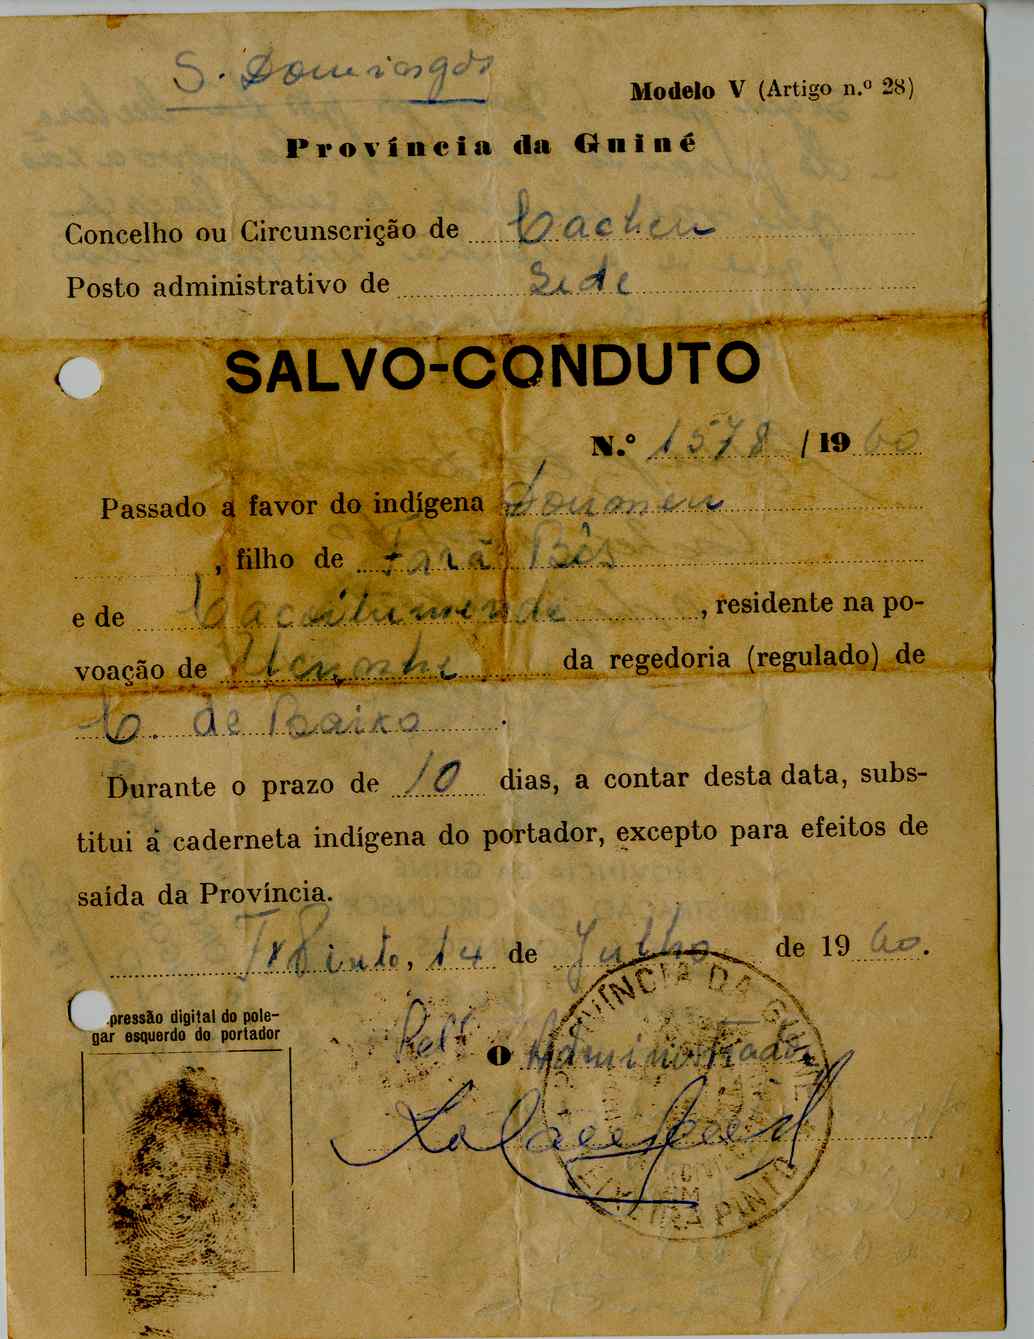 S. Domingos
Modelo V (Artigo n.º 28)
Província da Guiné
Concelho ou Circunscrição de Cacheu
Posto administrativo de Sede
SALVO-CONDUTO
N.º 1578 / 1960
Passado a favor do indígena
, filho de Fará Bós
e de , residente na po-
voação de da regedoria (regulado) de
C. de Baixo.
Durante o prazo de 10 dias, a contar desta data, subs-
titui a caderneta indígena do portador, excepto para efeitos de
saída da Província.
Tx Pinto, 14 de Julho de 1960.
pressão digital do pole-
gar esquerdo do portador
O Administrador
PROVÍNCIA DA GUINÉ
TEIXEIRA PINTO